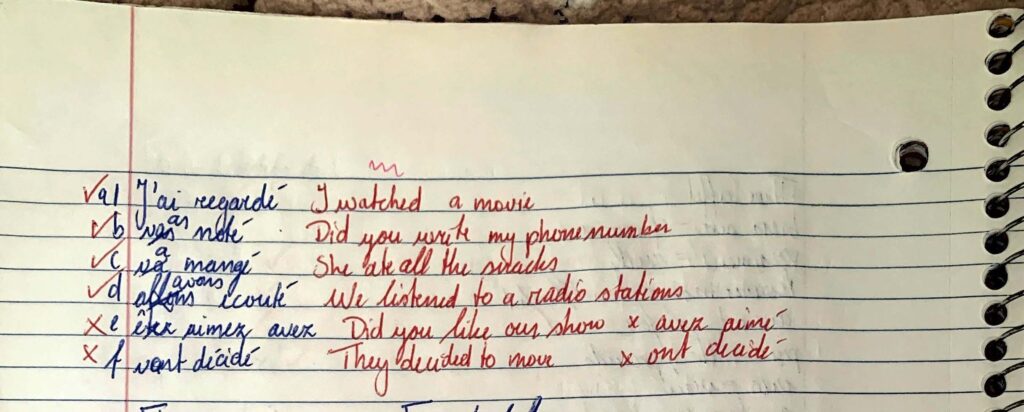 ✓a) J'ai regardé I watched a movie
✓b vas as noté Did you write my phone number
✓c va a mangé She ate all the snacks
✓d allons avons écouté We listened to a radio stations
×e êtez aimez avez Did you like our show × avez aimé
×f vont décidé They decided to move × ont decidé